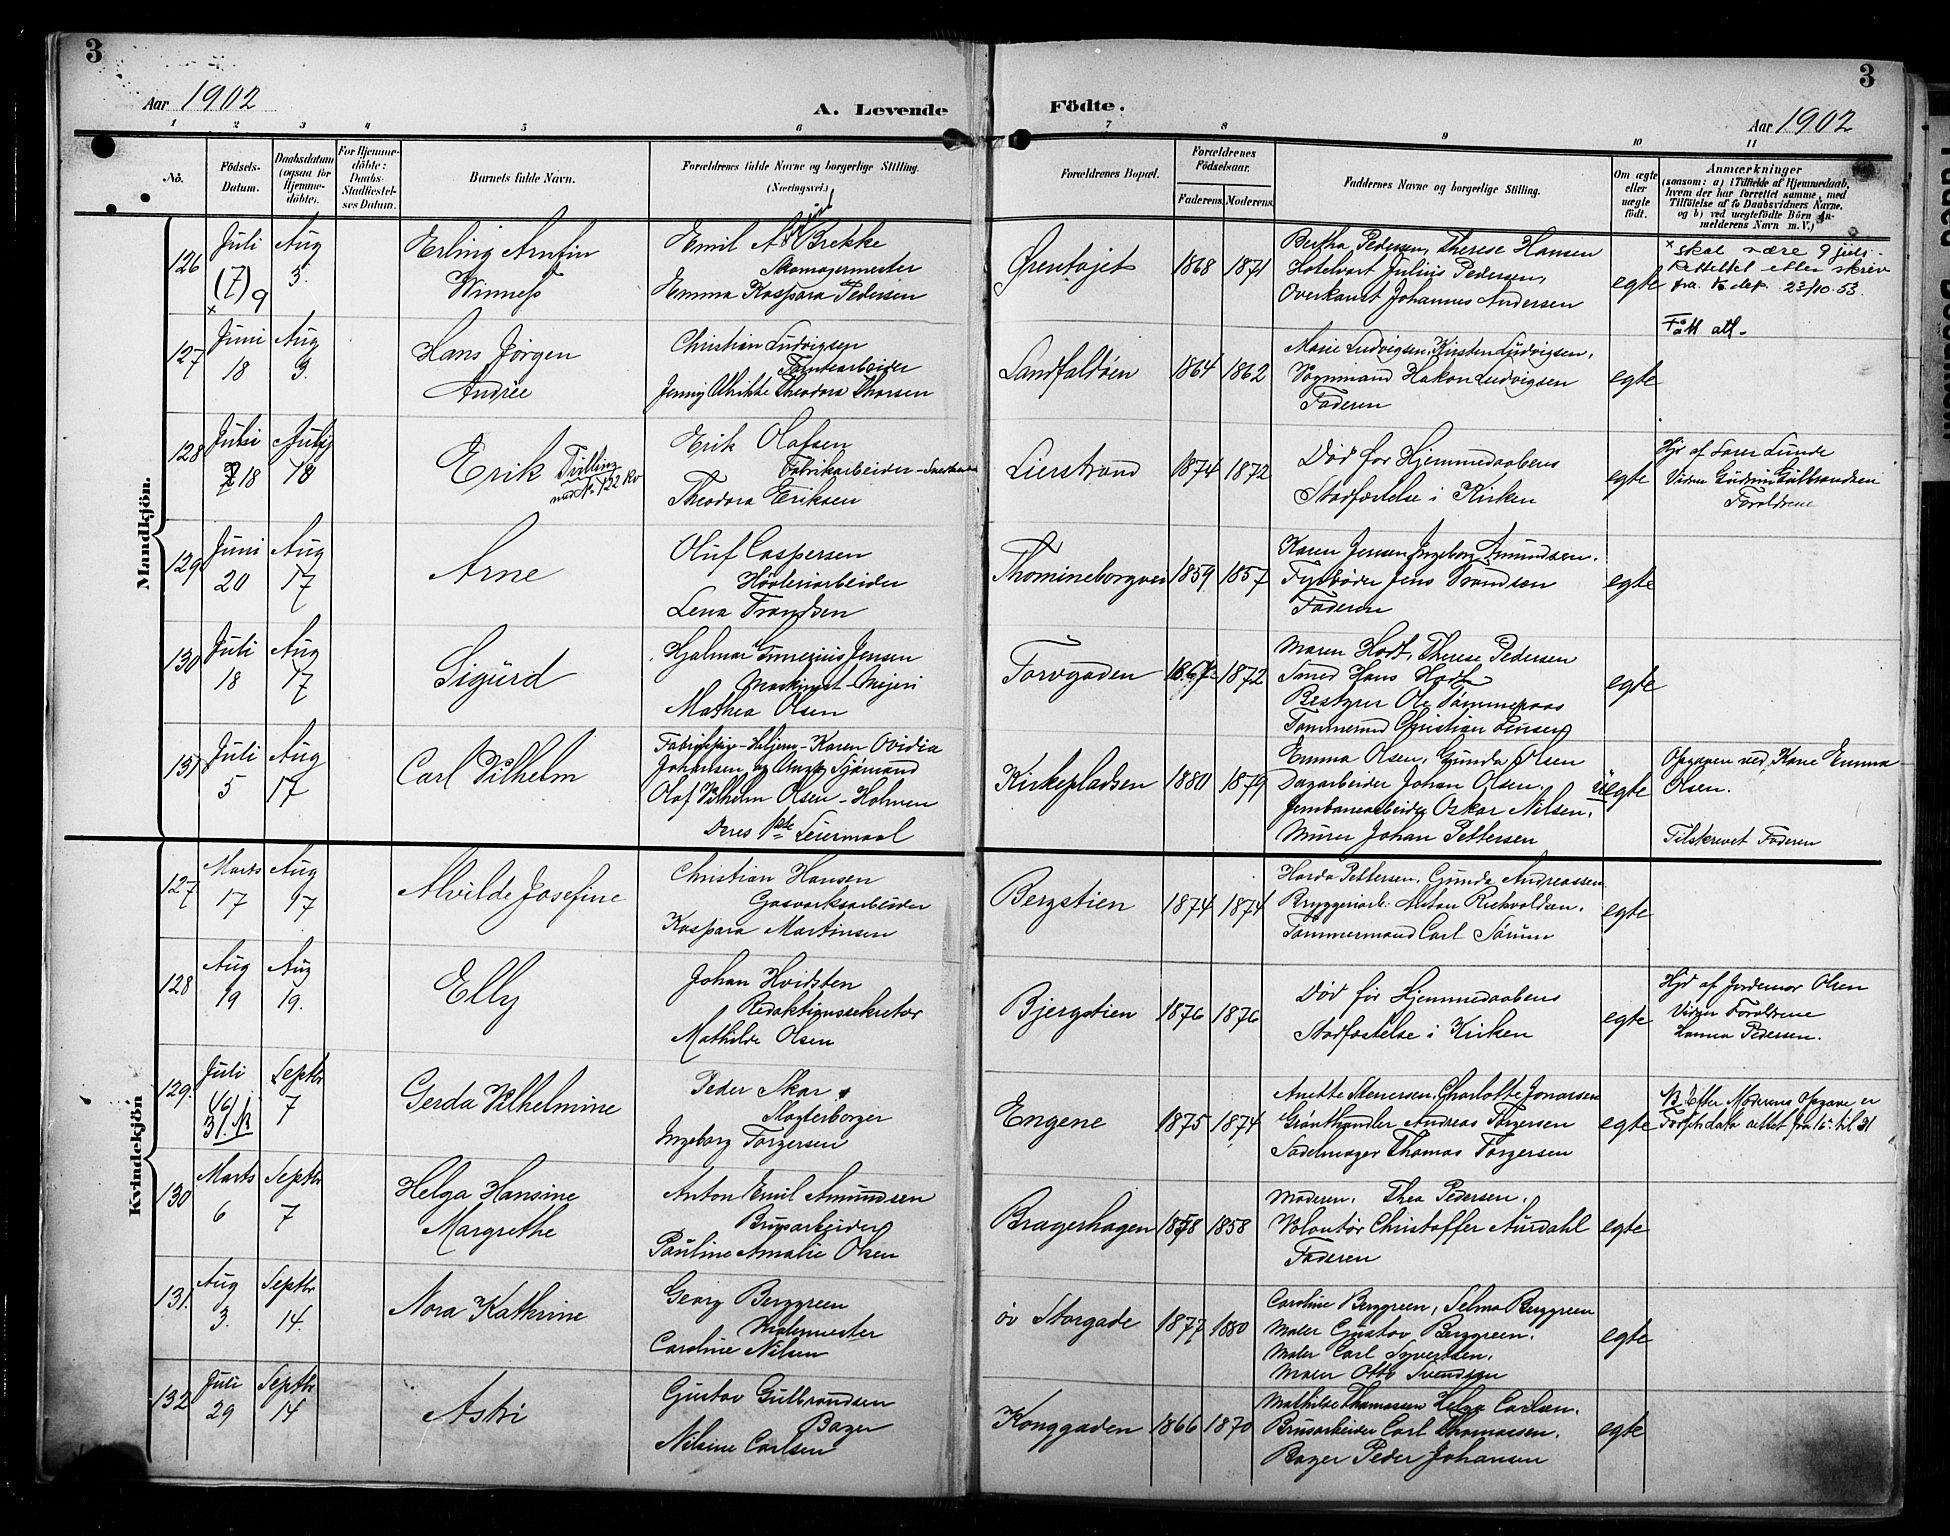 3
Aar 1902
A. Levende
Födte.
Aar 1902
3
1 2 3 4 5 6 7 8 9 10 11
No.
Födsels-Datum.
Daabsdatum (ogsaa for Hjemme-döbte).
For Hjemme-döbte: Daabs-Stadfæstel-ses Datum.
Barnets fulde Navn.
Forældrenes fulde Navne og borgerlige Stilling. (Næringsvei.)
Forældrenes Bopæl.
Forældrenes Födselsaar.
Faderens. Moderens.
Faddernes Navne og borgerlige Stilling.
Om ægte eller uægte födt.
Anmærkninger
(saasom: a) i Tilfælde af Hjemmedaab, hvem der har forrettet samme, med Tilföielse af to Daabsvidners Navne. og b) ved uægtefödte Börn An-melderens Navn m. V.)
Mandkjön.
126
Juli (7) 9 x
Aug 3.
Erling Arnfin
Winness
Emil Brekke
Skomagermester
Emma Kaspara Pedersen
Ørentøjet
1868 1871
Bertha Pedersen, Therese Hansen
Hotelvært Julius Pedersen,
Overkanst Johannes Andersen
egte
x skal være 9 juli.
Rettelse etter skriv
fra dep. 23/10. 53.
Fått att.
127
Juni 18
Aug 3.
Hans Jørgen
Andree
Christian Ludvigsen
Tomtearbeider
Jenny Ulrikke Theodora Thorsen
Landfaldøen
1864 1862
Marie Ludvigsen, Kirsten Ludvigsen,
Vognmand Hakon Ludvigsen
Faderen
egte
128
Juli 18
July 18
Erik
Tvilling
med No 122 Kv
Erik Olafsen
Fabrikarbeider
Theodora Eriksen
Lierstrand
1874 1872
Død før Hjemmedaabens
Stadfæstelse i Kirken
egte
Hjd af Lærer Lunde
Vidner Gudrun Gulbrandsen
Forældrene
129
Juni 20
Aug 17
Arne
Oluf Caspersen
Høvleriarbeider
Lena Trandsen
Thomineborgvei
1859 1857
Karen Jensen, Ingeborg Amundsen.
Fyrbøder Jens Trandsen
Faderen
egte
130
Juli 18
Aug 17
Sigurd
Hjalmar Jensen
Maskinist - Mejeri
Mathea Olsen
Torvgaden
1867 1872
Maren Hodt, Therese Pedersen
Smed Hans Hodt
Bestyrer Ole
Tømmermd Christian Jensen
egte
131
Juli 5
Aug 17
Carl Vilhelm
Fabrikspige - Hiljem - Karen Ovidia
Johansen og Ungk Sjømand
Olaf Vilhelm Olsen - Holmen
Deres 1ste Leiermaal
Kirkepladsen
1880 1879
Emma Olsen, Gunda Olsen
Dagarbeider Johan Olsen,
Jernbanearbeider Oskar Nilsen,
Murer Johan Pettersen
uegte
Opgaven ved Kone Emma
Olsen.
Tilskrevet Faderen
Kvindekjön
127
Marts 17
Aug 17
Alvilde Josefine
Christian Hansen
Gasværksarbeider
Kaspara Martinsen
Bergstien
1874 1874
Harda Pettersen, Gunda Andreassen
Bryggeriarb. Anton Rickvoldsen.
Tømmermand Carl Sørum
egte
128
Aug 19
Aug 19.
Elly
Johan Hvidsten
Redaktionssekretær
Mathilde Olsen
Bjergstien
1876 1876
Død før Hjemmedaabens
Stadfæstelse i Kirken
egte
Hjd af Jordemor Olsen
Vidner Forældrene
Hanna Pedersen.
129.
Juli 16 31. NB
Septbr 7
Gerda Vilhelmine
Peder Skar
Slagterborger
Ingeborg Torgersen
Engene
1875 1874
Anette Stenersen, Charlotte Jonassen
Grønthandler Andreas Torgersen
Sadelmager Thomas Torgersen
egte
NB. Efter Moderens Opgave er
Fødselsdato rettet fra 16 til 31
130
Marts 6
Septbr 7
Helga Hansine
Margrethe
Anton Emil Amundsen
Brugsarbeider
Pauline Amalie Olsen
Brageshagen
1858 1858
Moderen, Thea Pedersen,
Volontør Christoffer Aurdahl
Faderen
egte
131.
Aug 3.
Septbr 14.
Nora Kathrine
Georg Berggreen
Malermester
Caroline Nilsen
øv Storgade
1877 1880
Caroline Berggreen, Selma Berggreen
Maler Gustav Berggreen.
Maler Carl Syvertsen.
Maler Otto Svendsen
egte
132
Juli 29
Septbr 14
Astri
Gustav Gulbrandsen
Bager
Nilsine Carlsen
Konggaden
1866 1870
Mathilde Thomassen Helga Carlsen.
Brusarbeider Carl Thomassen.
Bager Peder Johansen
egte